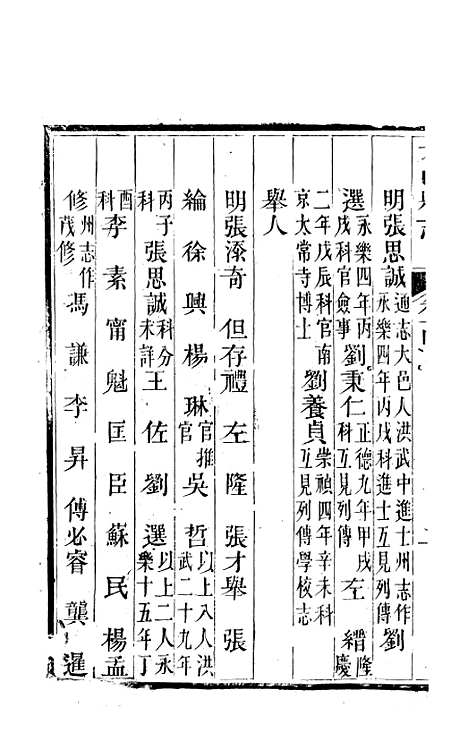 明張思誠通志大邑人洪武中進士州志作永樂四年丙戌科進士互見列傳劉
選永樂四年丙戌科官僉事劉秉仁正德九年甲戌科互見列傳左縉隆慶
二年戊辰科官南京太常寺博士劉養貞崇禎四年辛未科互見列傳學校志
舉人
明張添奇但存禮左隆張才舉張
綸徐興楊琳官推官吳哲以上八人洪武二十九年
丙子科張思誠科分未詳王佐劉選以上二人永樂十五年丁
酉科李素甯魁匡臣蘇民楊孟
修州志作茂修馮謙李昇傅必睿龔暹